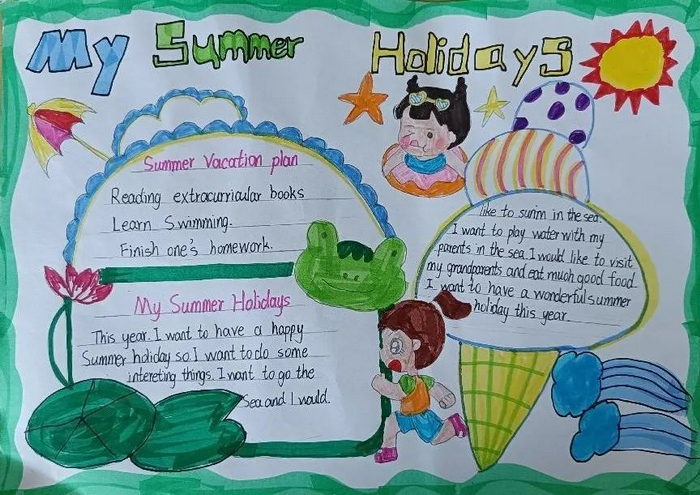 My Summer Holidays
Summer Vacation plan
Reading extracurricular books
Learn Swimming.
Finish one's homework.
My Summer Holidays
This year. I want to have a happy
Summer holiday so I want to do some
intereting things. I want to go the
Sea and I would.
like to swim in the sea
I want to play water with my
parents in the sea. I would like to visit
my grandparents and eat much good food.
I want to have a wonderful summer
holiday this year